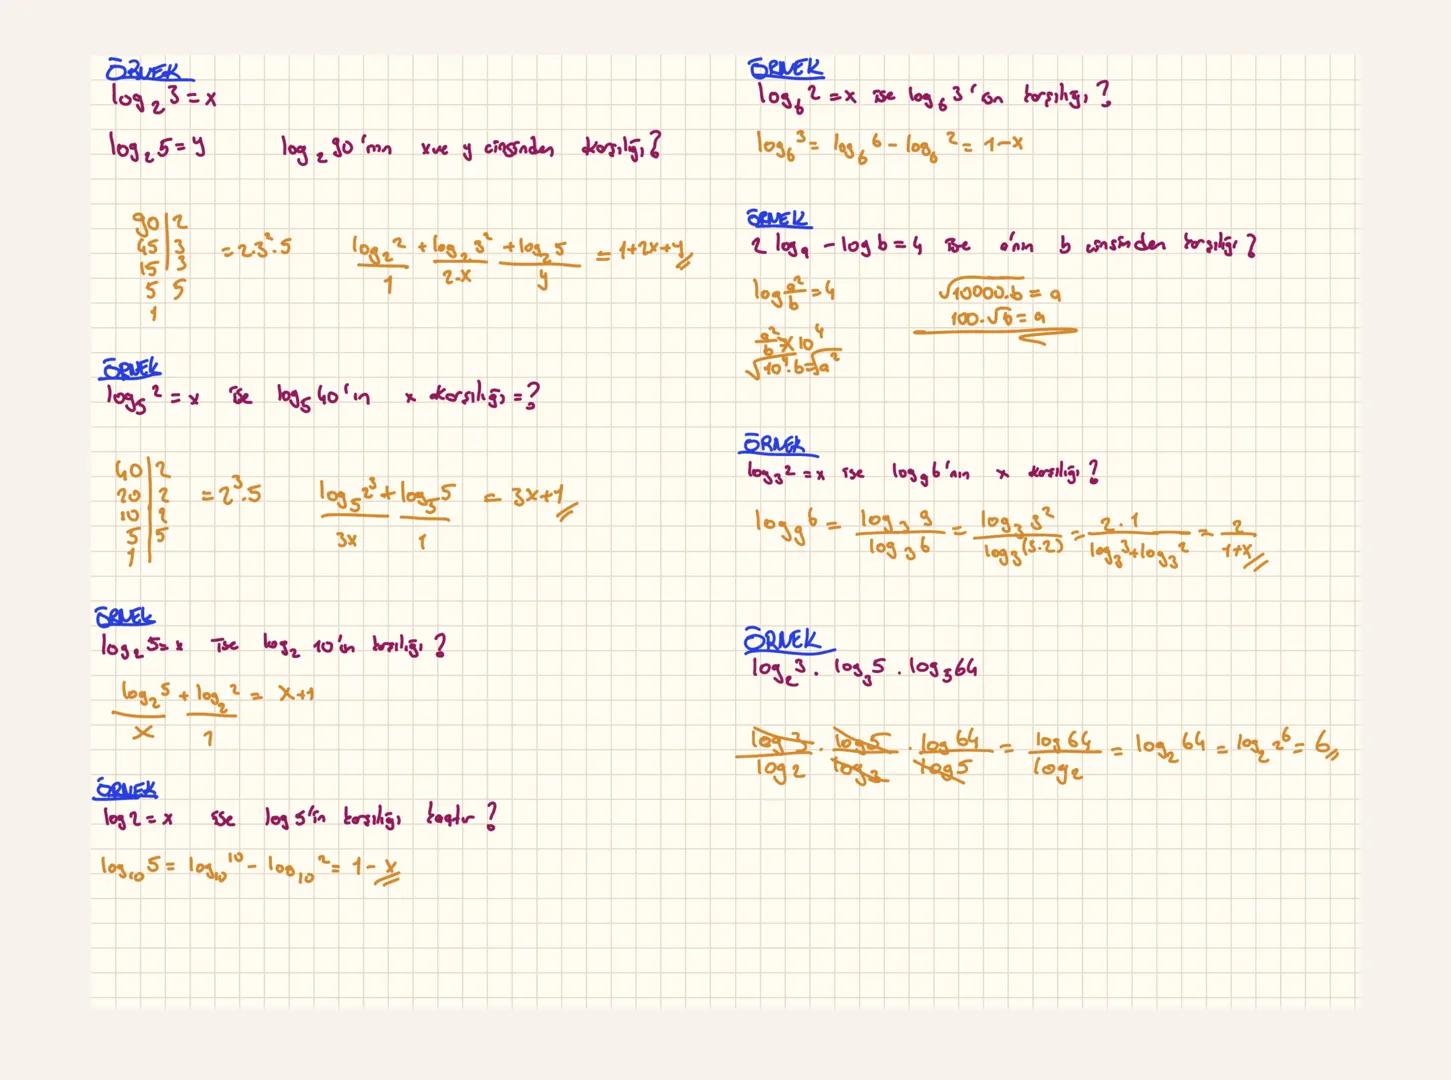 ÖRNEK
log₂3 = x
log₂5 = y log₂90'nın x ve y cinsinden karşılığı?
90 | 2
45 | 3
15 | 3
5 5
1
= 2.3².5
log₂2 + log₂3² + log₂5 = 1+2x+y
1 2.x y
ÖRNEK
log₅2 = x ise log₅40'ın x karşılığı = ?
40 | 2
20 | 2
10 | 2
5 | 5
1
= 2³.5
log₅2³ + log₅5 = 3x+1
3x 1
ÖRNEK
log₂5 = x ise log₂10'un karşılığı?
log₂5 + log₂2 = x+1
x 1
ÖRNEK
log2 = x ise log5'in karşılığı kaçtır?
log₁₀5 = log₁₀10 - log₁₀2 = 1-x
ÖRNEK
log₆2 = x ise log₆3'ün karşılığı?
log₆3 = log₆6 - log₆2 = 1-x
ÖRNEK
2 log a - log b = 4 ise a'nın b cinsinden karşılığı?
log a²/b = 4
a²/b 10⁴
√10⁴.b = √a²
√10000.b = a
100.√b = a
ÖRNEK
log₃2 = x ise log₉6'nın x karşılığı?
log₉6 = log₃9 / log₃6 = log₃3² / log₃(3.2) = 2.1 / log₃3+log₃2 = 2 / 1+x
ÖRNEK
log₂3 . log₃5 . log₅64
log3/log2 . log5/log3 . log64/log5 = log64/log2 = log₂64 = log₂2⁶ = 6